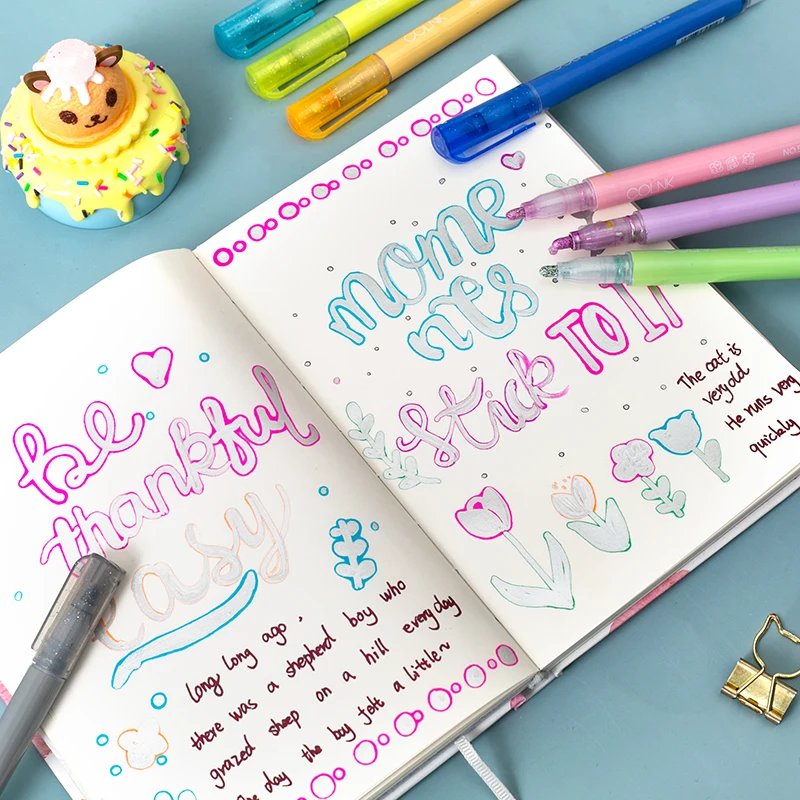 be
thankful
easy
long long ago,
there was a shepherd boy who
grazed sheep on a hill everyday
day the boy felt a little~
mome
nts
stick TO IT
The cat is
very old
He runs very
quickly
COLNK